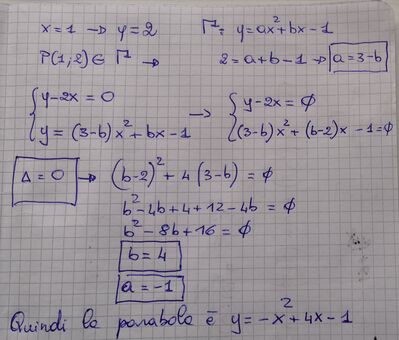 x=1 → y=2 Γ= y=ax²+bx-1
P(1;2)∈ Γ → 2=a+b-1 → a=3-b
{ y-2x=0 → { y-2x=∅
y=(3-b)x²+bx-1 (3-b)x²+(b-2)x-1=∅
Δ=0 → (b-2)²+4(3-b)=∅
b²-4b+4+12-4b=∅
b²-8b+16=∅
b=4
a=-1
Quindi la parabola è y=-x²+4x-1